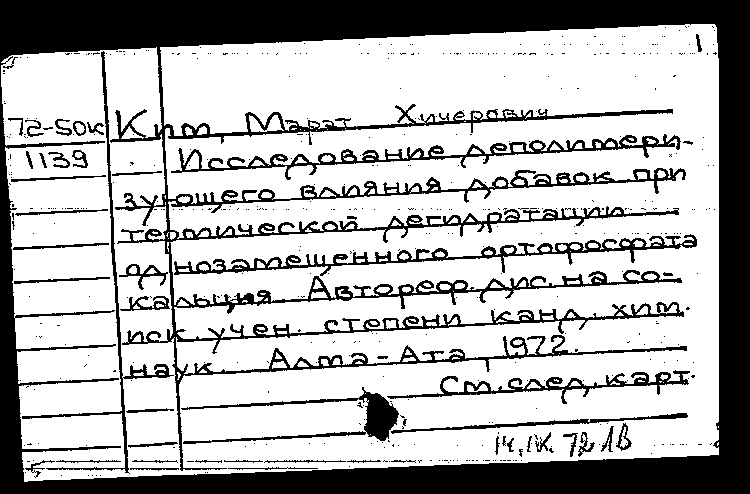 1
72-50к Ким, Марат Хичерович
1139 Исследование деполимери-
зующего влияния добавок при
термической дегидратации
однозамещенного ортофосфата
кальция Автореф. дис. на со-
иск. учен. степени канд. хим.
наук. Алма-Ата, 1972.
См. след. карт.
14.IX.72